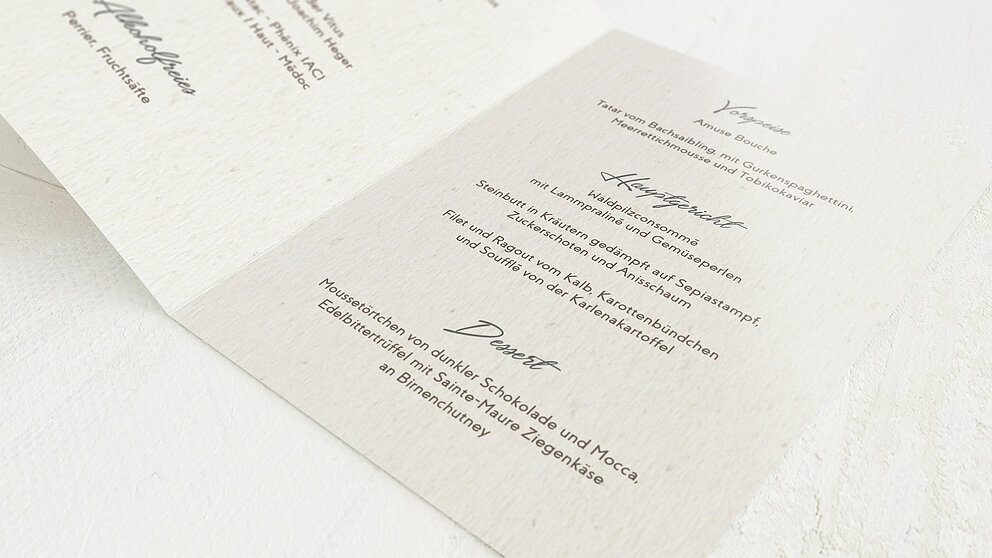 Vitus
Joachim Heger
Phénix (AC)
Haut - Médoc
Alkoholfreies
Perrier, Fruchtsäfte
Vorpeise
Amuse Bouche
Tatar vom Bachsaibling, mit Gurkenspaghettini,
Meerrettichmousse und Tobikokaviar
Hauptgericht
Waldpilzconsommé
mit Lammpraliné und Gemüseperlen
Steinbutt in Kräutern gedämpft auf Sepiastampf,
Zuckerschoten und Anisschaum
Filet und Ragout vom Kalb, Karottenbündchen
und Soufflé von der Karlenakartoffel
Dessert
Moussetörtchen von dunkler Schokolade und Mocca,
Edelbittertrüffel mit Sainte-Maure Ziegenkäse
an Birnenchutney